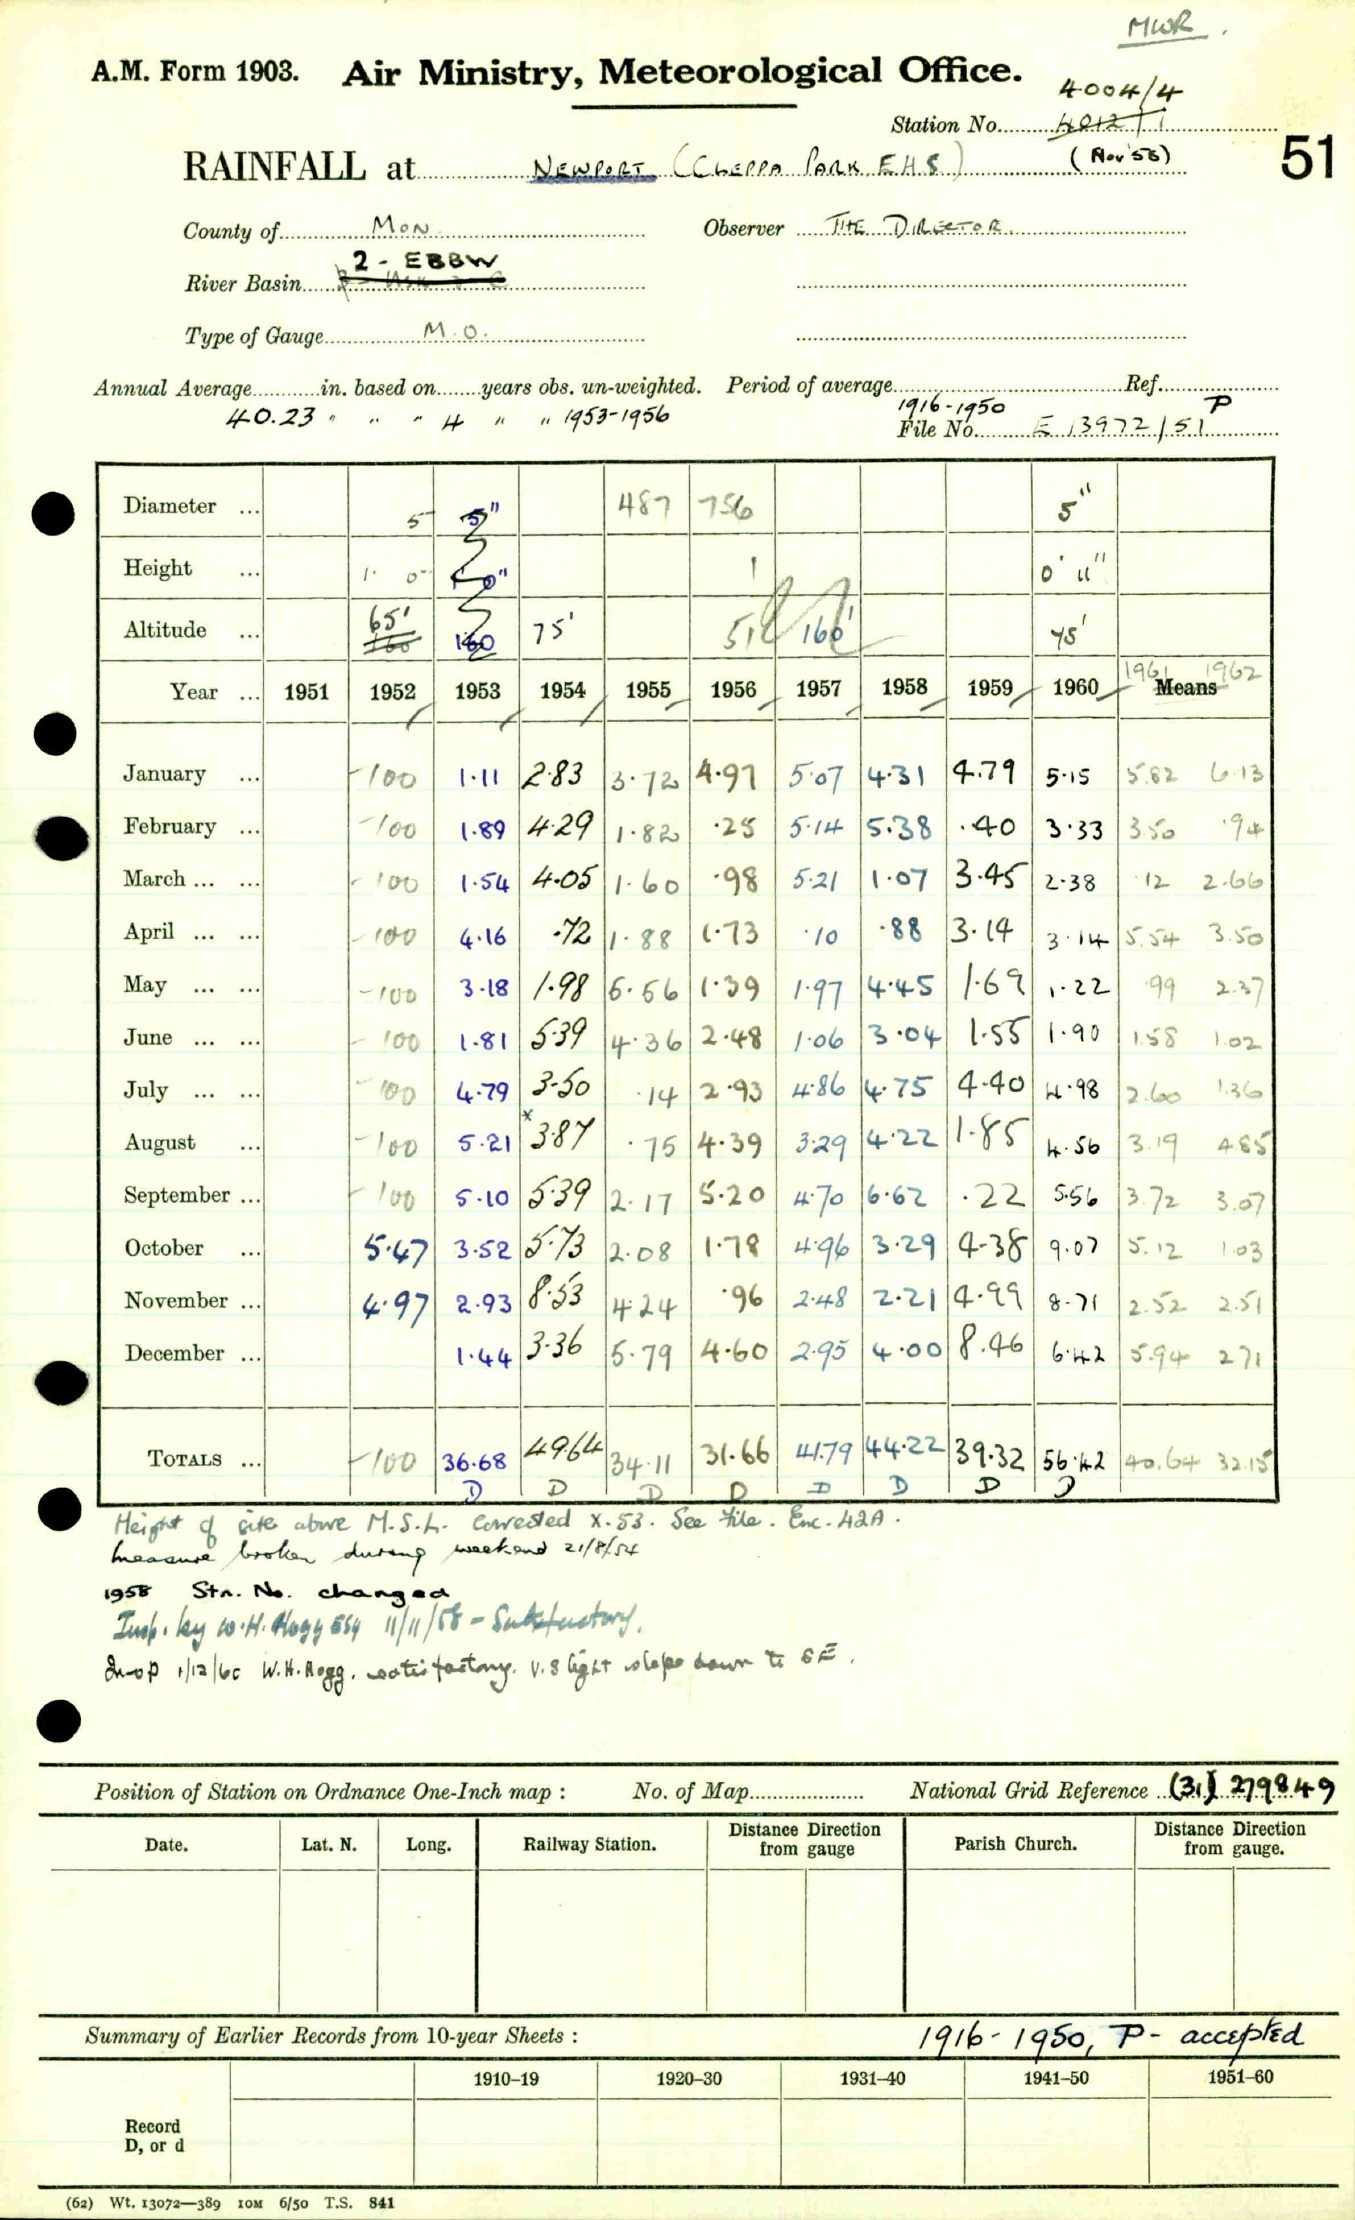 MWR.
A.M. Form 1903. Air Ministry, Meteorological Office.
4004/4
Station No. 4012/1
(Nov '58)
51
RAINFALL at NEWPORT (CLEPPA PARK E.H.S)
County of MON. Observer THE DIRECTOR.
2 - EBBW
River Basin
Type of Gauge M.O.
Annual Average in. based on years obs. un-weighted. Period of average Ref.
40.23 " " " 4 " " 1953-1956 1916-1950 P
File No. E 13972/51
Diameter ... 5 5" 487 756 5"
Height ... 1' 0" 1' 0" 0' 11"
Altitude ... 65' 160 160 75' 51 160' 75'
Year ... 1951 1952 1953 1954 1955 1956 1957 1958 1959 1960 Means 1961 1962
January ... -100 1.11 2.83 3.72 4.97 5.07 4.31 4.79 5.15 5.82 6.13
February ... -100 1.89 4.29 1.82 .25 5.14 5.38 .40 3.33 3.50 .94
March ... ... -100 1.54 4.05 1.60 .98 5.21 1.07 3.45 2.38 .12 2.66
April ... ... -100 4.16 .72 1.88 1.73 .10 .88 3.14 3.14 5.54 3.50
May ... ... -100 3.18 1.98 6.56 1.39 1.97 4.45 1.69 1.22 .99 2.37
June ... ... -100 1.81 5.39 4.36 2.48 1.06 3.04 1.55 1.90 1.58 1.02
July ... ... -100 4.79 3.50 .14 2.93 4.86 4.75 4.40 4.98 2.60 1.36
August ... -100 5.21 *3.87 .75 4.39 3.29 4.22 1.85 4.56 3.19 4.85
September ... -100 5.10 5.39 2.17 5.20 4.70 6.62 .22 5.56 3.72 3.07
October ... 5.47 3.52 5.73 2.08 1.78 4.96 3.29 4.38 9.07 5.12 1.03
November ... 4.97 2.93 8.53 4.24 .96 2.48 2.21 4.99 8.71 2.52 2.51
December ... 1.44 3.36 5.79 4.60 2.95 4.00 8.46 6.42 5.94 2.71
TOTALS ... -100 36.68 49.64 34.11 31.66 41.79 44.22 39.32 56.42 40.64 32.15
D D D D D D D D
Height of site above M.S.L. corrected X.53. See File. Enc. 42A.
Measure broken during weekend 21/8/54
1958 Stn. No. changed
Insp. by W.H. Hogg Esq 11/11/58 - Satisfactory.
Insp 1/12/60 W.H. Hogg, satisfactory. V. slight slope down to SE.
Position of Station on Ordnance One-Inch map : No. of Map National Grid Reference (31) 279849
Date. Lat. N. Long. Railway Station. Distance Direction from gauge Parish Church. Distance Direction from gauge.
Summary of Earlier Records from 10-year Sheets : 1916-1950, P- accepted
1910–19 1920–30 1931–40 1941–50 1951–60
Record
D, or d
(62) Wt. 13072—389 10M 6/50 T.S. 841